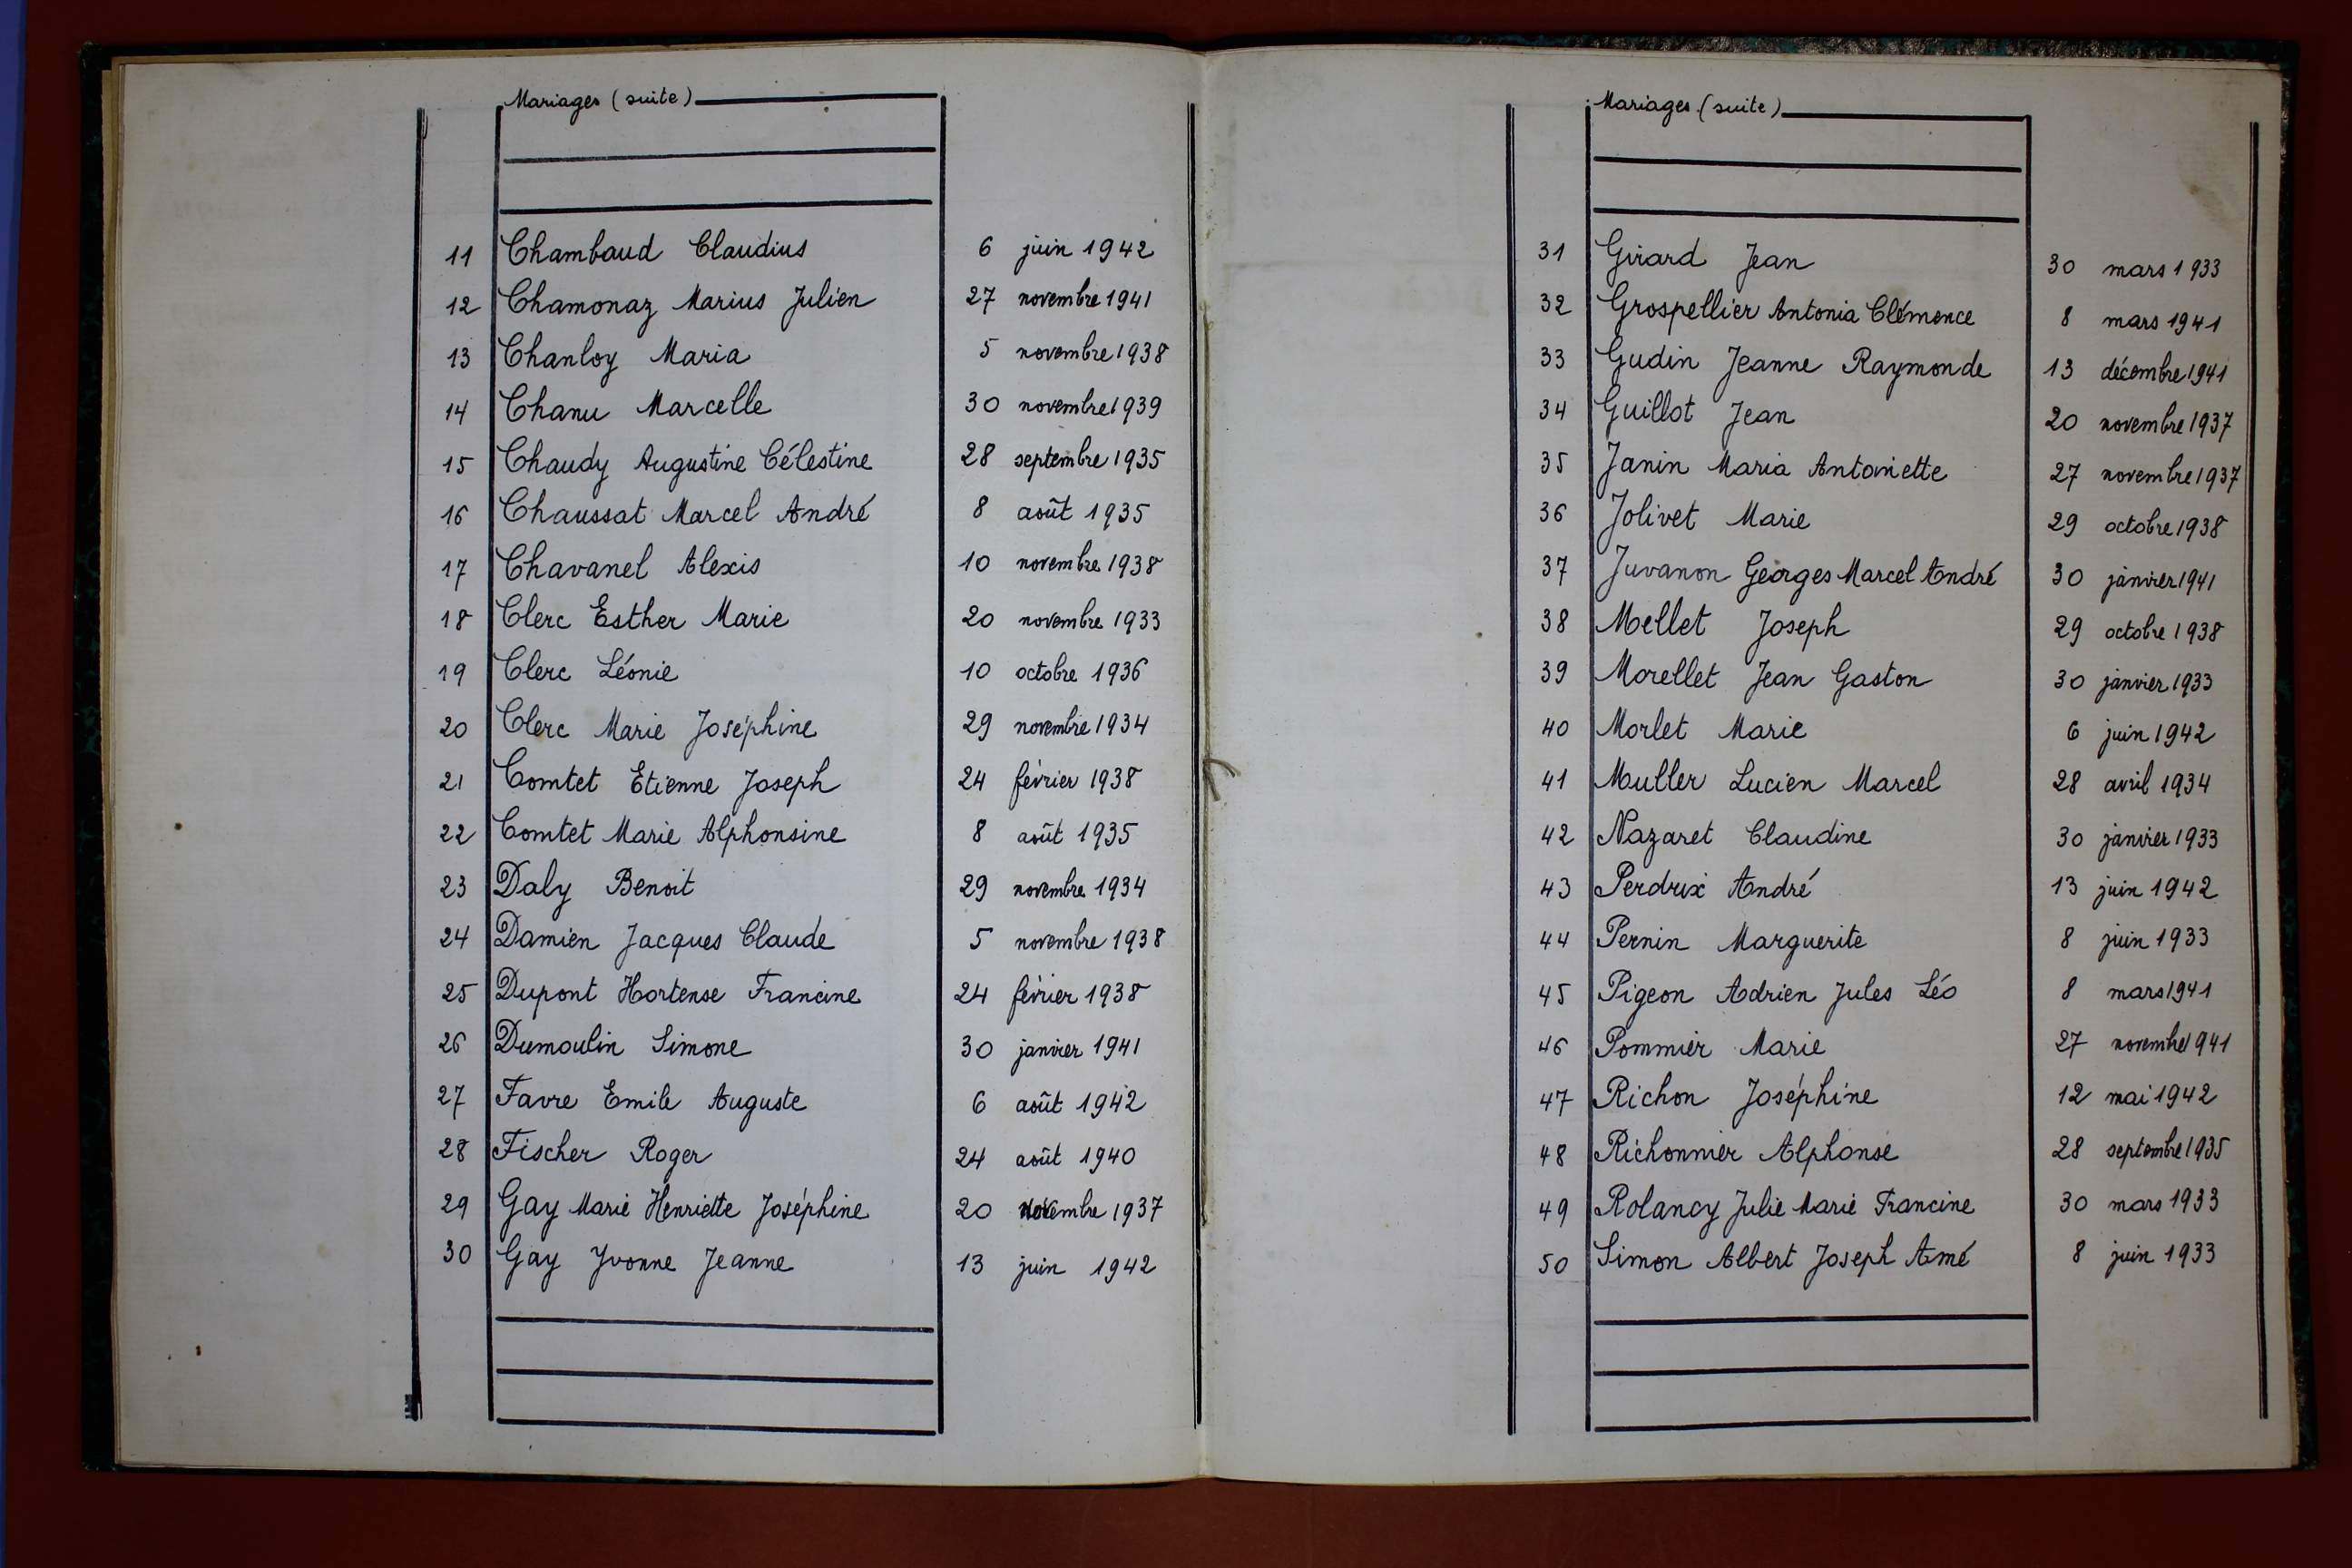 Mariages (suite)
11 Chambaud Claudius 6 juin 1942
12 Chamonaz Marius Julien 27 novembre 1941
13 Chanloy Maria 5 novembre 1938
14 Chanu Marcelle 30 novembre 1939
15 Chaudy Augustine Célestine 28 septembre 1935
16 Chaussat Marcel André 8 août 1935
17 Chavanel Alexis 10 novembre 1938
18 Clerc Esther Marie 20 novembre 1933
19 Clerc Léonie 10 octobre 1936
20 Clerc Marie Joséphine 29 novembre 1934
21 Comtet Etienne Joseph 24 février 1938
22 Comtet Marie Alphonsine 8 août 1935
23 Daly Benoit 29 novembre 1934
24 Damien Jacques Claude 5 novembre 1938
25 Dupont Hortense Francine 24 février 1938
26 Dumoulin Simone 30 janvier 1941
27 Favre Emile Auguste 6 août 1942
28 Fischer Roger 24 août 1940
29 Gay Marie Henriette Joséphine 20 novembre 1937
30 Gay Yvonne Jeanne 13 juin 1942
Mariages (suite)
31 Girard Jean 30 mars 1933
32 Grospellier Antonia Clémence 8 mars 1941
33 Gudin Jeanne Raymonde 13 décembre 1941
34 Guillot Jean 20 novembre 1937
35 Janin Maria Antoinette 27 novembre 1937
36 Jolivet Marie 29 octobre 1938
37 Juvanon Georges Marcel André 30 janvier 1941
38 Mellet Joseph 29 octobre 1938
39 Morellet Jean Gaston 30 janvier 1933
40 Morlet Marie 6 juin 1942
41 Muller Lucien Marcel 28 avril 1934
42 Nazaret Claudine 30 janvier 1933
43 Perdrix André 13 juin 1942
44 Pernin Marguerite 8 juin 1933
45 Pigeon Adrien Jules Léo 8 mars 1941
46 Pommier Marie 27 novembre 1941
47 Richon Joséphine 12 mai 1942
48 Richonnier Alphonse 28 septembre 1935
49 Rolancy Julie Marie Francine 30 mars 1933
50 Simon Albert Joseph Amé 8 juin 1933